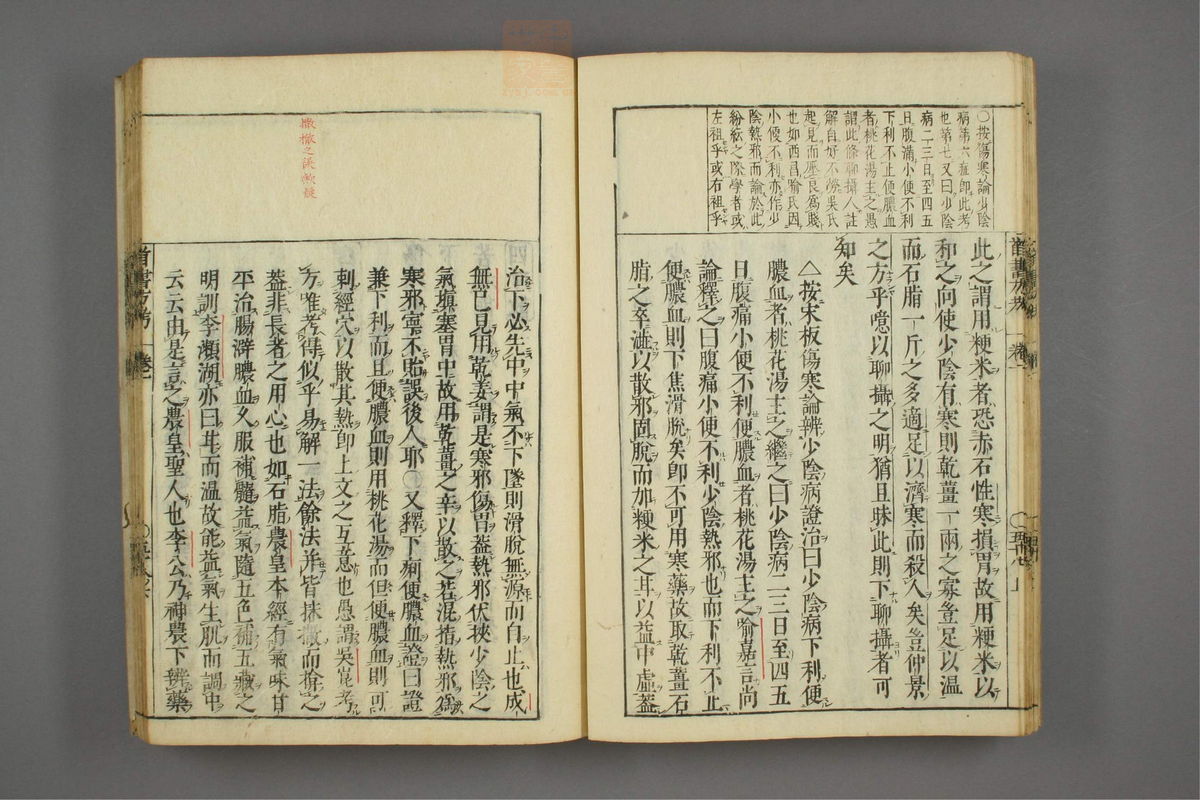 ○按傷寒論少陰
病第六症即此考
也第七又曰少陰
病二三日至四五
日腹滿小便不利
下利不止便膿血
者桃花湯主之愚
謂此條聊攝人註
解自好不滲吳氏
起見而壓良爲賤
也如西昌喻氏因
小便不利亦作少
陰熱邪而論於此
紛紜之際學者或
左祖乎或右祖乎
此之謂用粳米者恐赤石性寒損胃故用粳米以
和之向使少陰有寒則乾薑一兩之寡豈足以溫
而石脂一斤之多適足以濟寒而殺人矣豈仲景
之方乎噫以聊攝之明猶且昧此則下聊攝者可
知矣
△按宋板傷寒論辨少陰病證治曰少陰病下利便
膿血者桃花湯主之繼之曰少陰病二三日至四五
日腹痛小便不利便膿血者桃花湯主之喻嘉言尚
論釋之曰腹痛小便不利少陰熱邪也而下利不止
便膿血則下焦滑脫矣即不可用寒藥故取乾薑石
脂之辛澁以散邪固脫而加粳米之耳以益中虛蓋
治下必先中中氣不下墜則滑脫無源而自止也成
無已見用乾姜謂是寒邪傷胃蓋熱邪伏挾少陰之
氣塡塞胃中故用乾薑之辛以散之若混指熱邪爲
寒邪寧不貽誤後人耶○又釋下痢便膿血證曰證
兼下利而且便膿血則用桃花湯而但便膿血則可
刺經穴以散其熱即上文之互意也愚謂吳崑考
方唯考得似乎易解一法餘法并皆抹撇而揜之
蓋非長者之用心也如石脂農皇本經有氣味甘
平治腸澼膿血久服補髓益氣隨五色補五臟之
明訓李瀕湖亦曰甘而溫故能益氣生肌而調中
云云由是言之農皇聖人也李公乃神農下辨藥